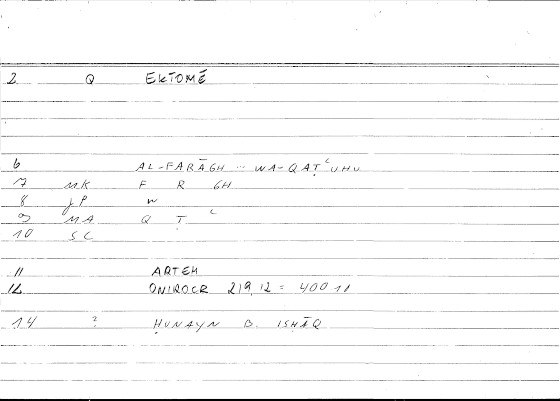 2 Q EKTOMĒ
6 AL-FARĀGH ... WA-QAṬʿUHU
7 MK F R GH
8 JP W
9 MA Q Ṭ ʿ
10 SC
11 ARTEM
12 ONIROCR 219,12 = 400 11
14 ? ḤUNAYN B. ISḤĀQ